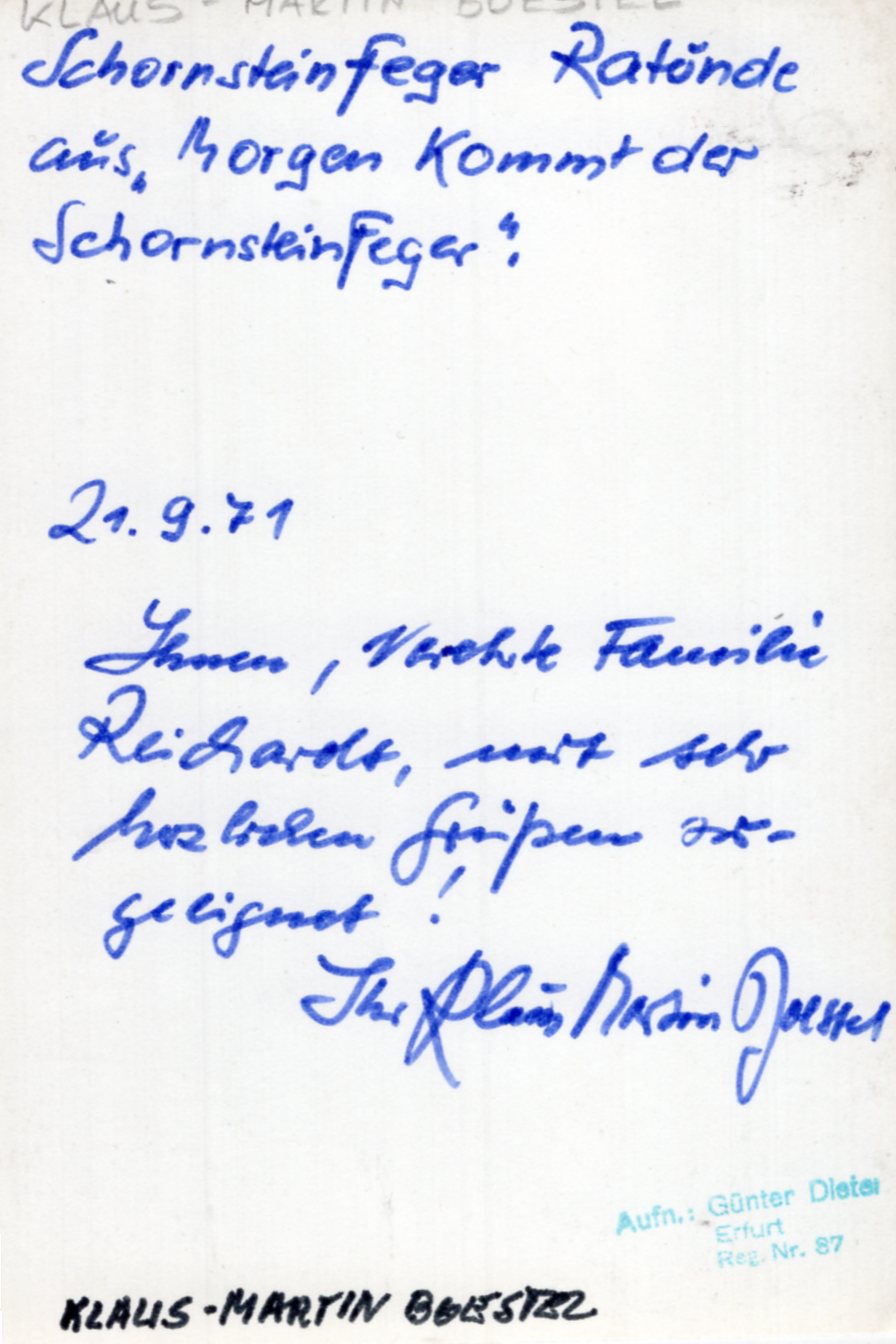 KLAUS-MARTIN BOESTEL
Schornsteinfeger Ratönde
aus „Morgen kommt der
Schornsteinfeger“.
21.9.71
Ihnen, verehrte Familie
Reichardt, mit sehr
herzlichen Grüßen zu-
geeignet!
Ihr Klaus Martin Boestel
Aufn.: Günter Dieter
Erfurt
Reg. Nr. 87
KLAUS-MARTIN BOESTEL